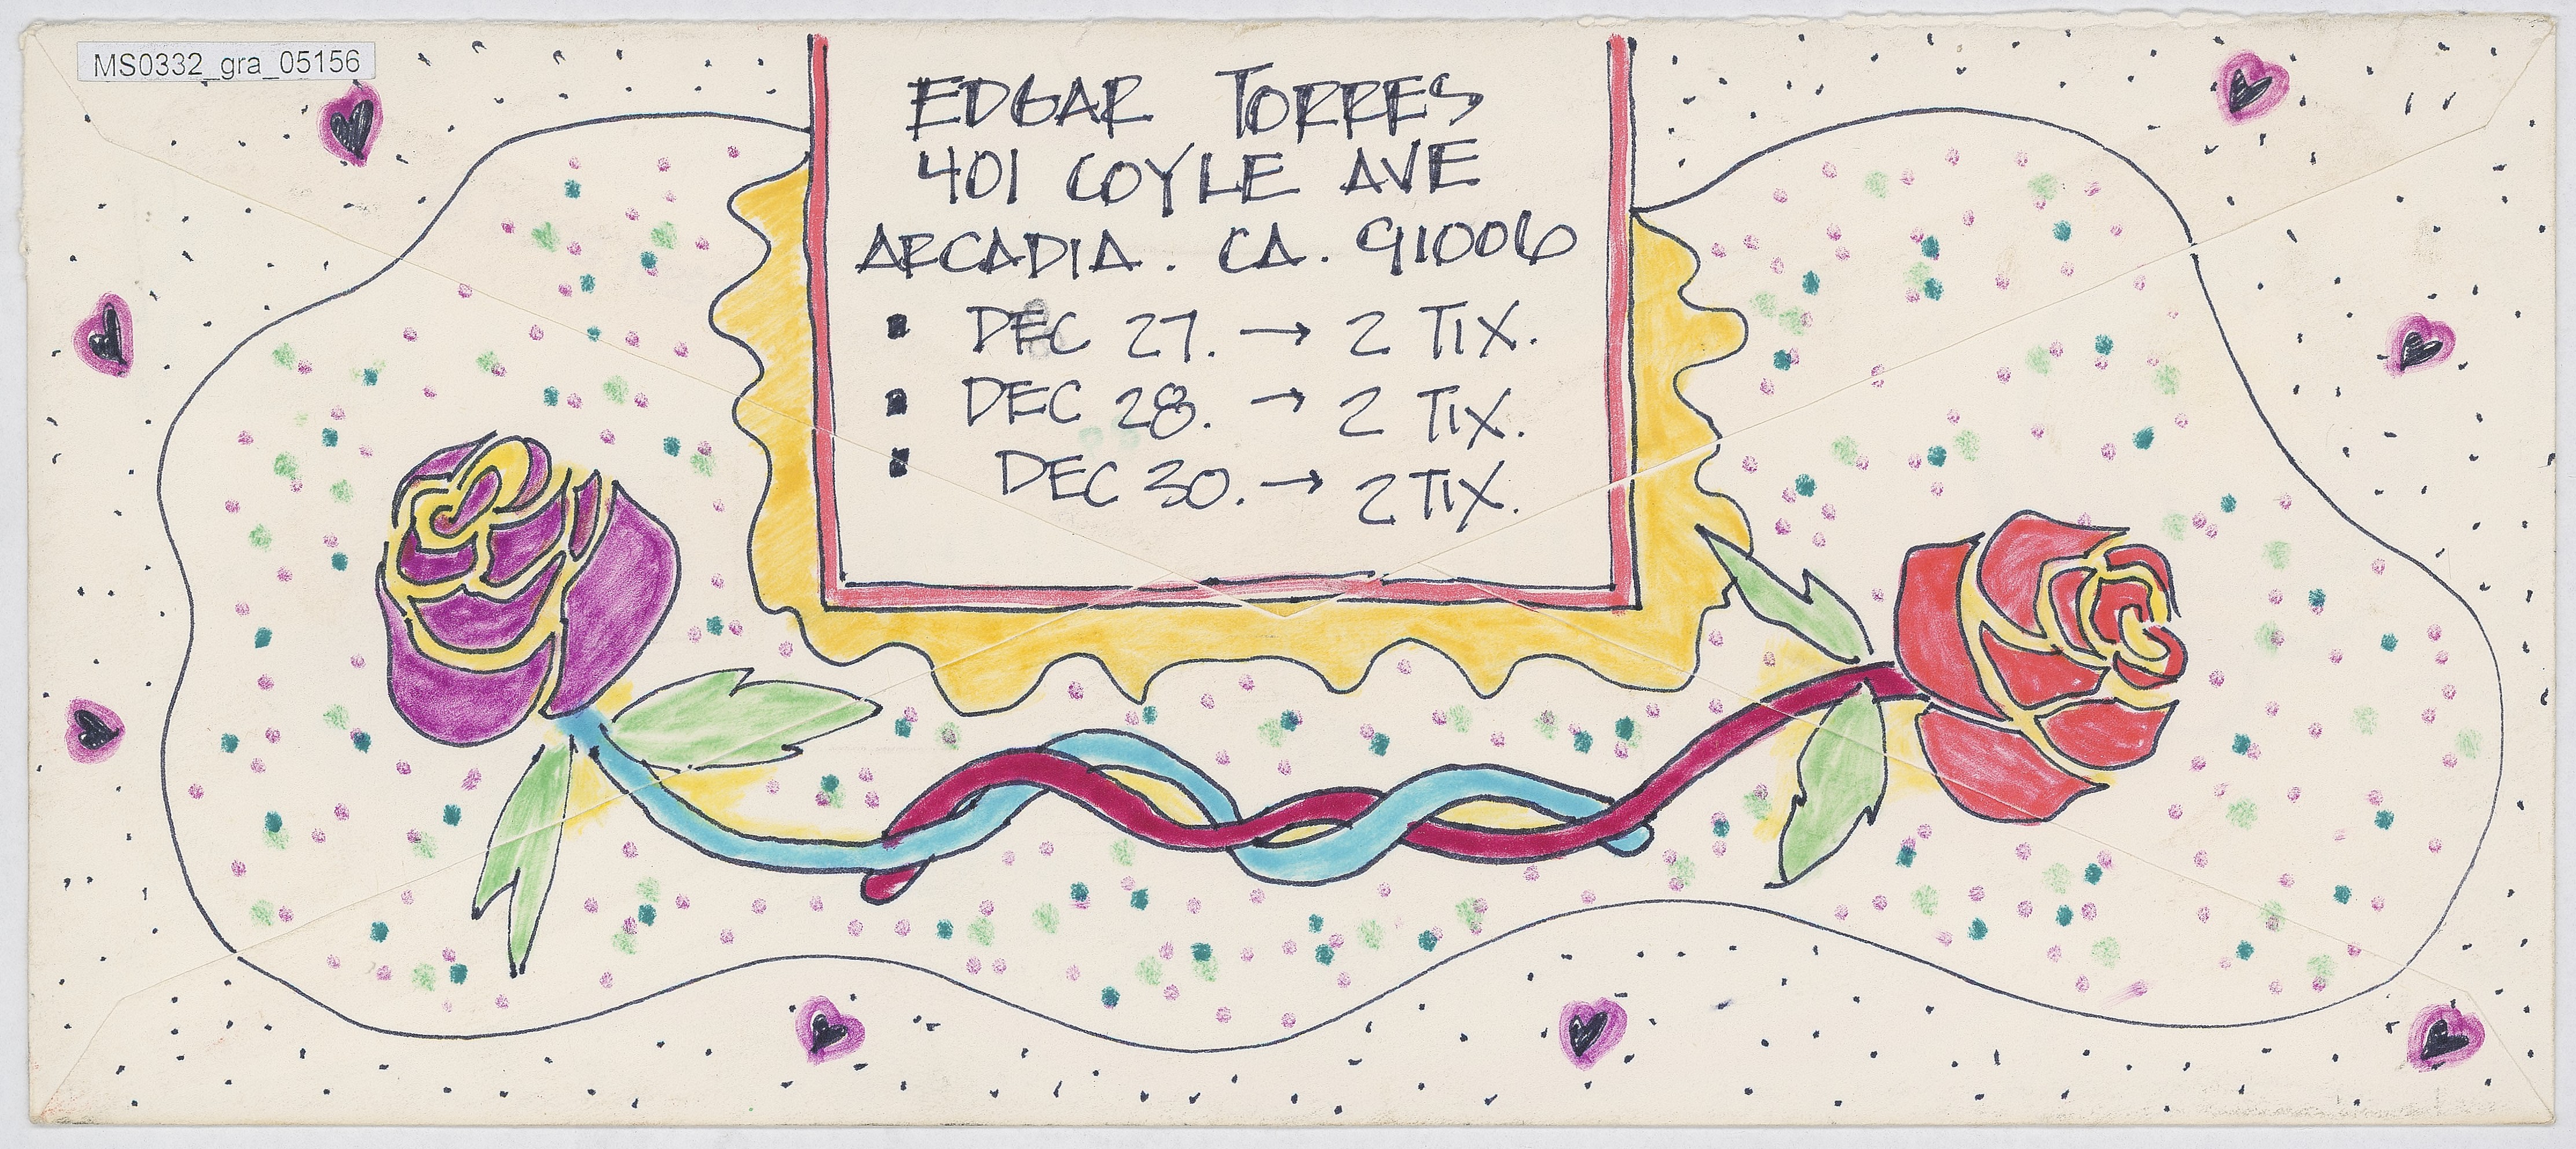 MS0332_gra_05156
EDGAR TORRES
401 COYLE AVE
ARCADIA. CA. 91006
▪ DEC 27. → 2 TIX.
▪ DEC 28. → 2 TIX.
▪ DEC 30. → 2 TIX.